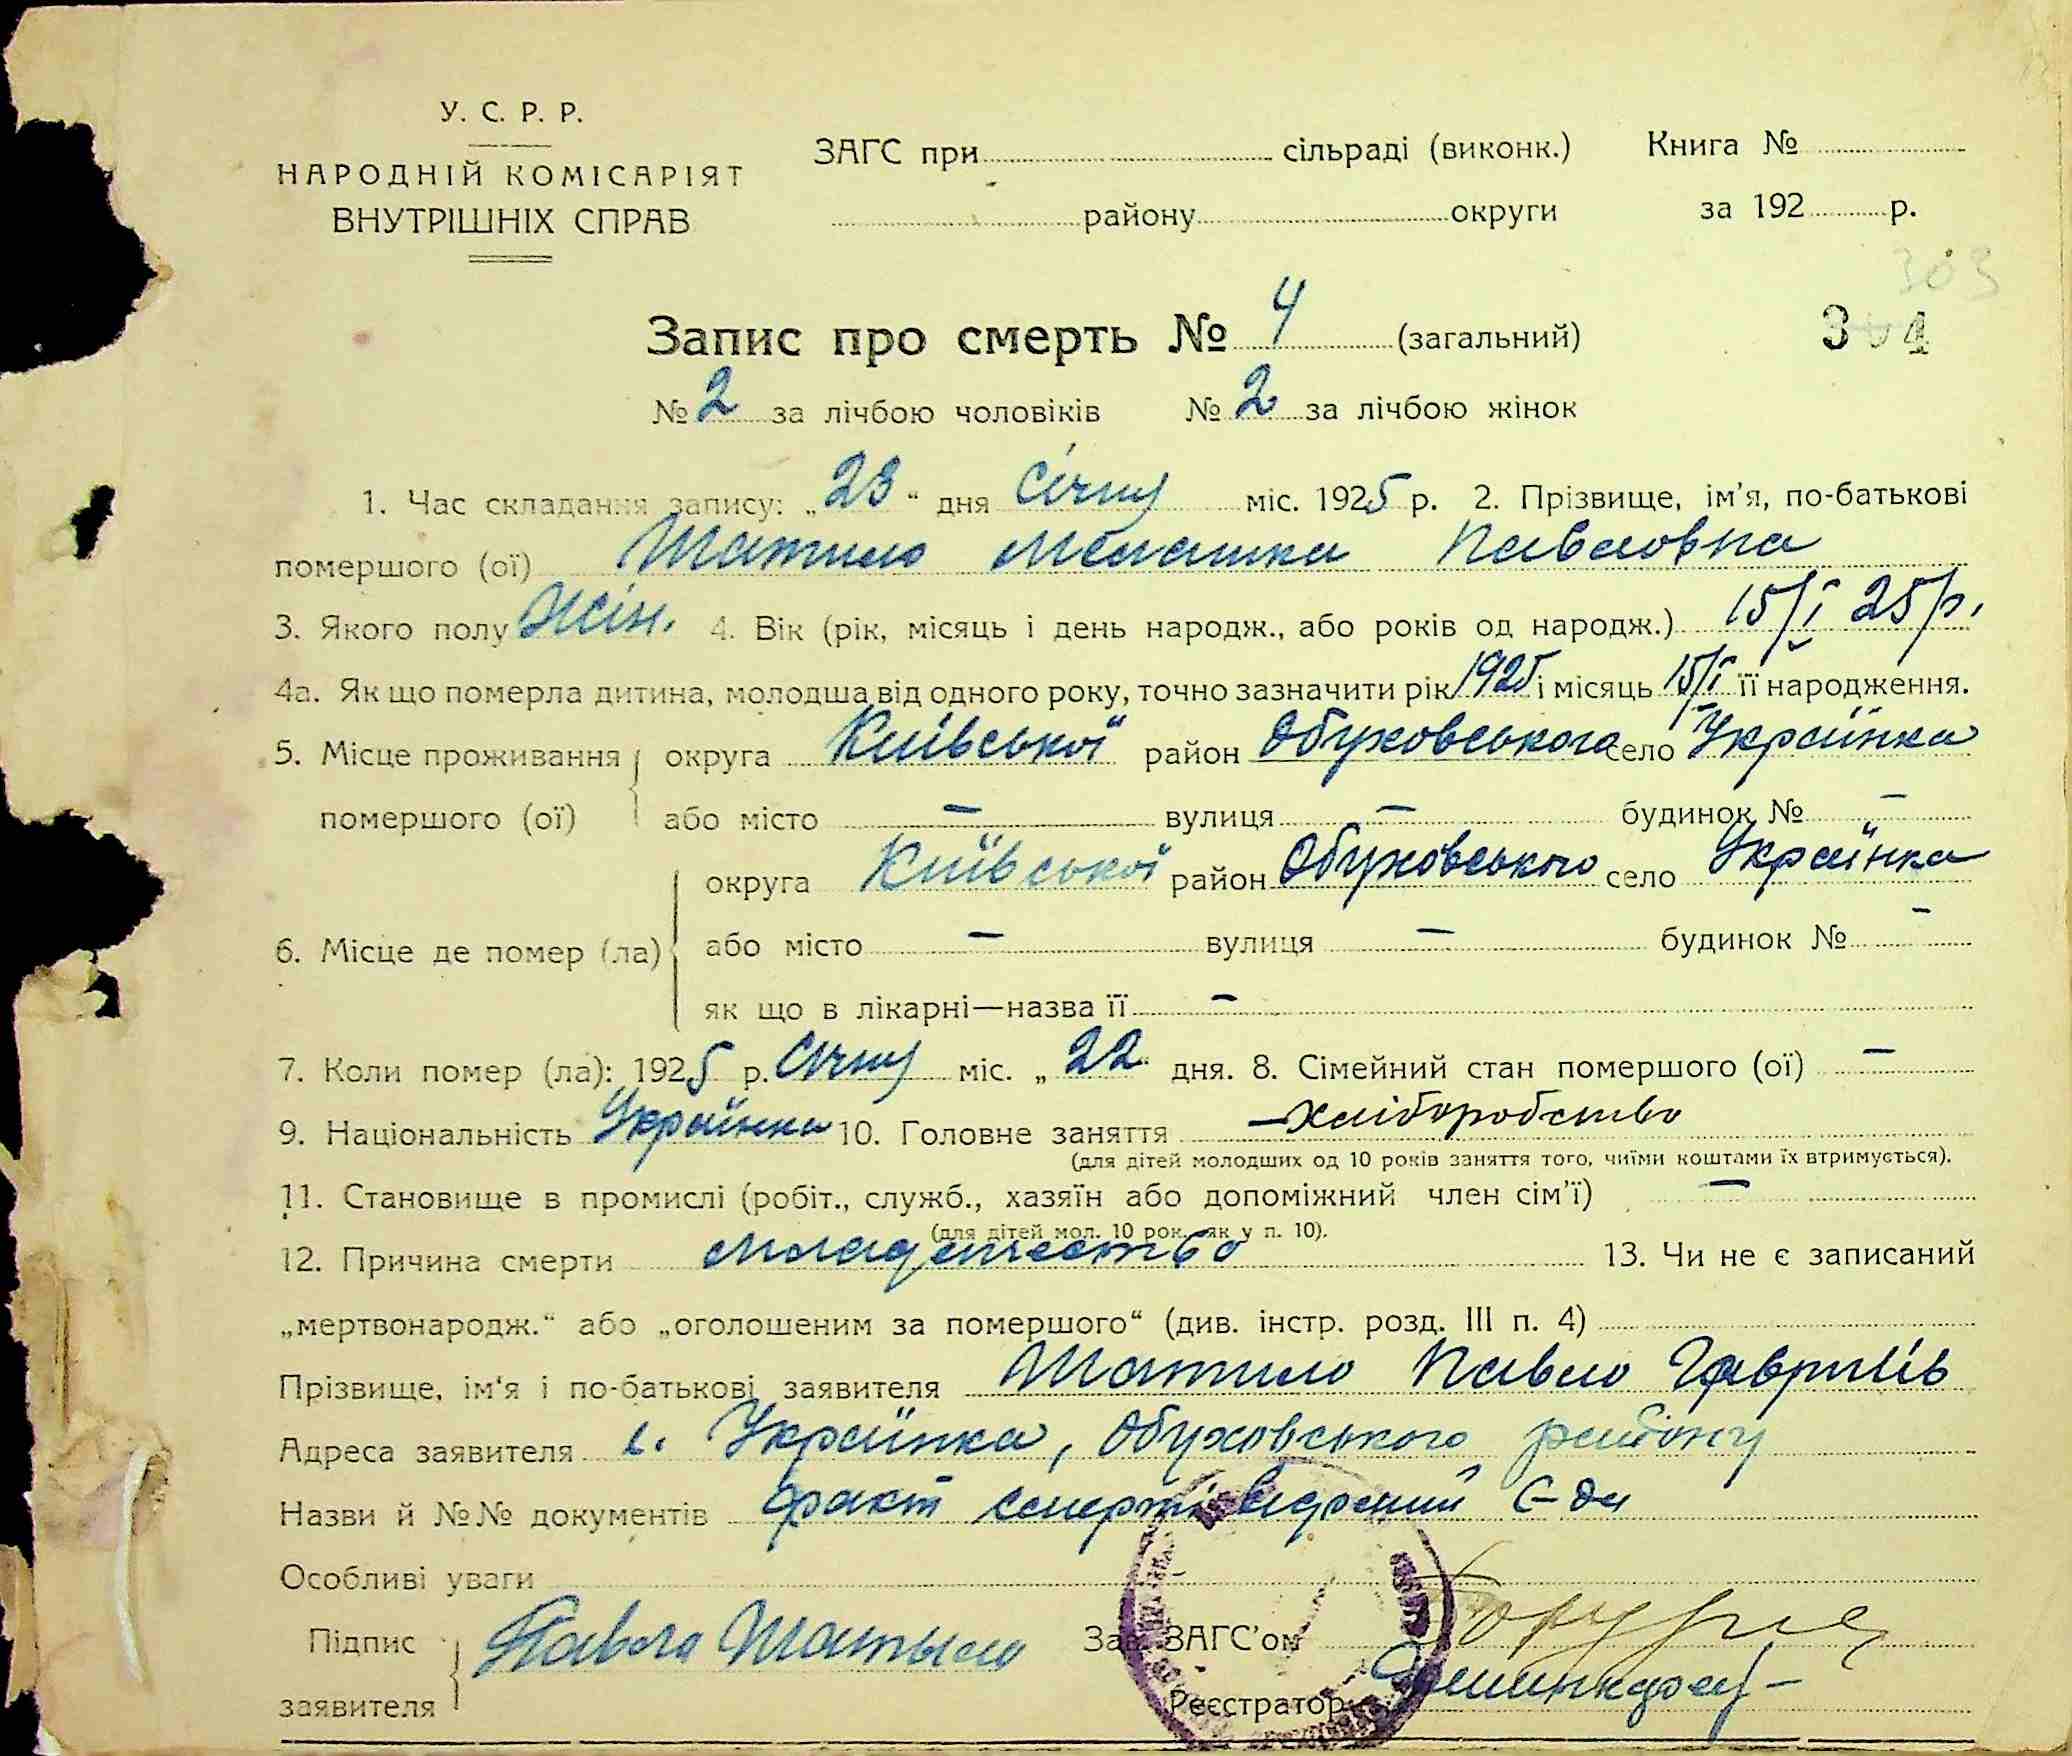 У. С. Р. Р.
НАРОДНІЙ КОМІСАРІЯТ
ВНУТРІШНІХ СПРАВ
ЗАГС при сільраді (виконк.) Книга №
району округи за 192 р.
303
Запис про смерть № 4 (загальний) 304
№ 2 за лічбою чоловіків № 2 за лічбою жінок
1. Час складання запису: „23“ дня Січня міс. 1925 р. 2. Прізвище, ім'я, по-батькові
помершого (ої) Шатило Мелашка Павловна
3. Якого полу Жін. 4. Вік (рік, місяць і день народж., або років од народж.) 15/І 25 р.
4а. Як що померла дитина, молодша від одного року, точно зазначити рік 1925 і місяць 15/І її народження.
5. Місце проживання округа Київської район Обуховського село Українка
помершого (ої) або місто — вулиця — будинок № —
округа Київської район Обуховського село Українка
6. Місце де помер (ла) або місто — вулиця — будинок № —
як що в лікарні—назва її —
7. Коли помер (ла): 1925 р. Січня міс. „22“ дня. 8. Сімейний стан помершого (ої) —
9. Національність Українка 10. Головне заняття — хліборобство
(для дітей молодших од 10 років заняття того, чиїми коштами їх втримується).
11. Становище в промислі (робіт., служб., хазяїн або допоміжний член сім'ї) —
(для дітей мол. 10 рок. як у п. 10).
12. Причина смерти младенчество 13. Чи не є записаний
„мертвонародж.“ або „оголошеним за помершого“ (див. інстр. розд. III п. 4)
Прізвище, ім'я і по-батькові заявителя Шатило Павло Гаврилів
Адреса заявителя с. Українка, Обуховського району
Назви й №№ документів факт смерті
Особливі уваги
Підпис Павло Шатыло Зав. ЗАГС'ом
заявителя Реєстратор